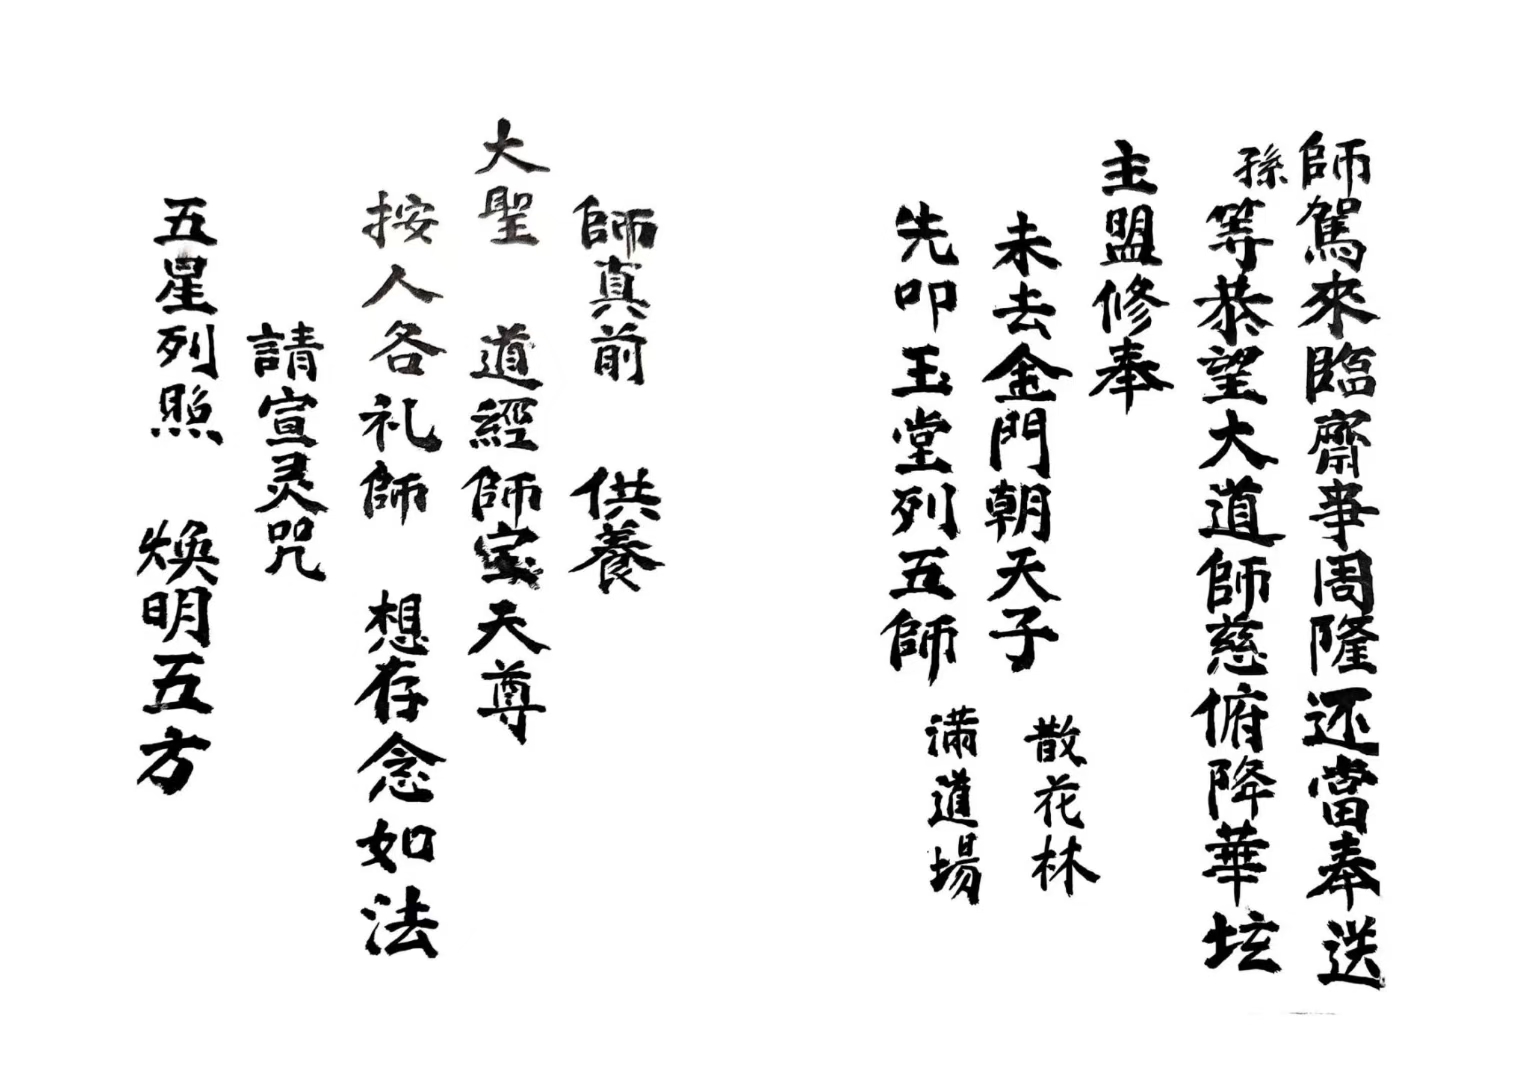 師駕來臨齋事周隆还當奉送
孫等恭望大道師慈俯降華坛
主盟修奉
未去金門朝天子 散花林
先叩玉堂列五師 滿道場
師真前 供養
大聖 道經師宝天尊
按人各礼師 想存念如法
請宣灵咒
五星列照 煥明五方